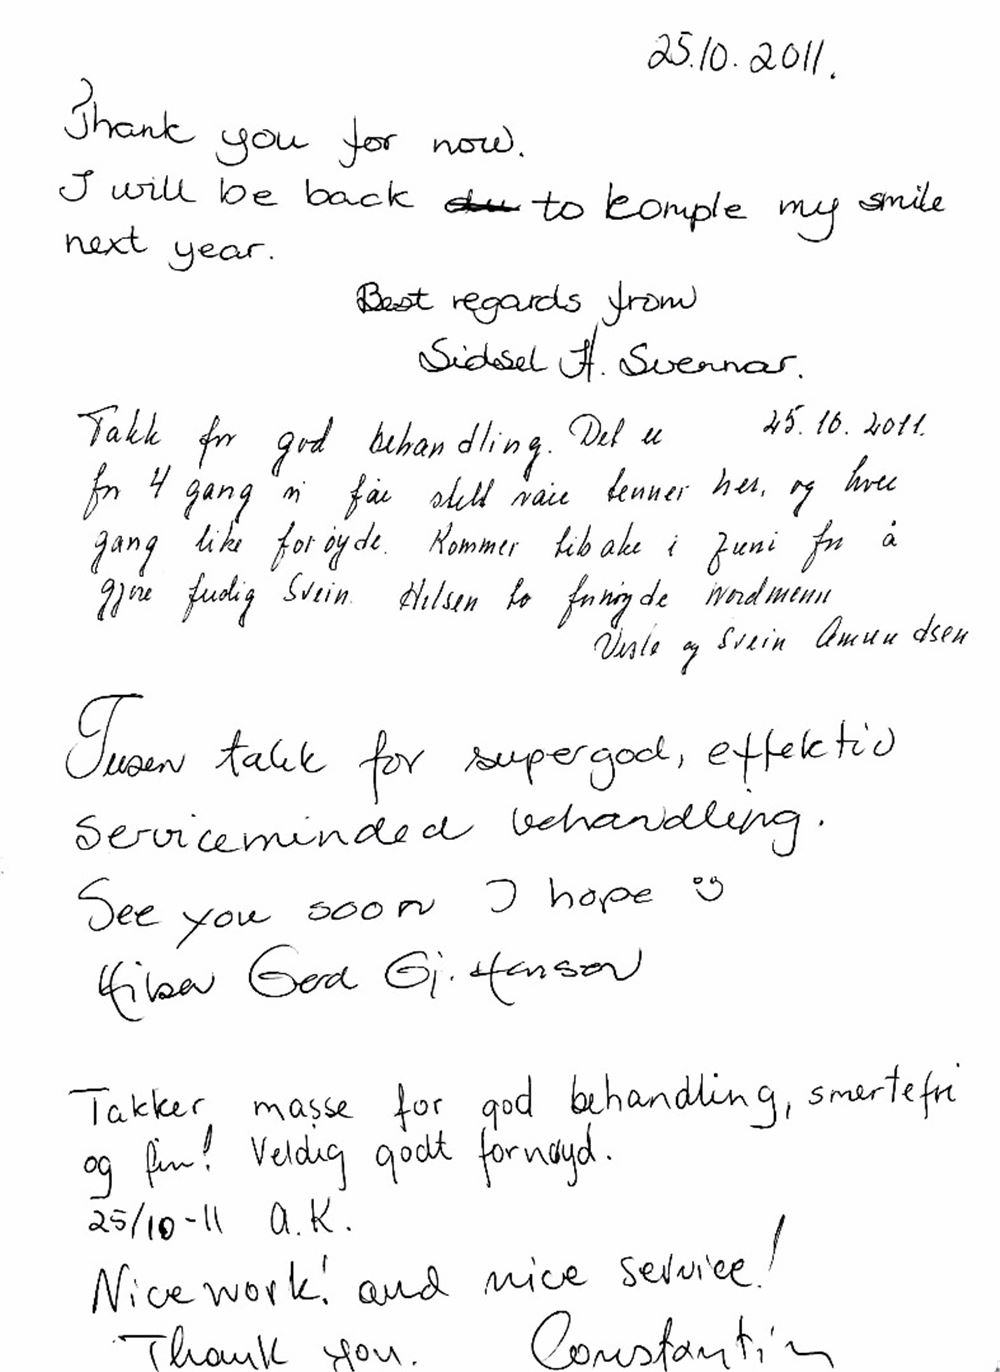 25.10.2011.
Thank you for now.
I will be back to komple my smile
next year.
Best regards from
Sidsel H. Svennar.
Takk for god behandling. Det er 25.10.2011.
for 4 gang vi får stelt våre tenner her, og hver
gang like forøyde. Kommer tibake i Juni for å
gjøre ferdig Svein. Hilsen to fornøyde nordmenn
Vesla og Svein Amundsen
Tusen takk for supergod, effektiv
serviceminded behandling.
See you soon I hope ☺
Hilsen Gerd Gj. Hansen
Takker masse for god behandling, smertefri
og fin! Veldig godt fornøyd.
25/10-11 A.K.
Nice work! and nice service!
Thank you. Constantin